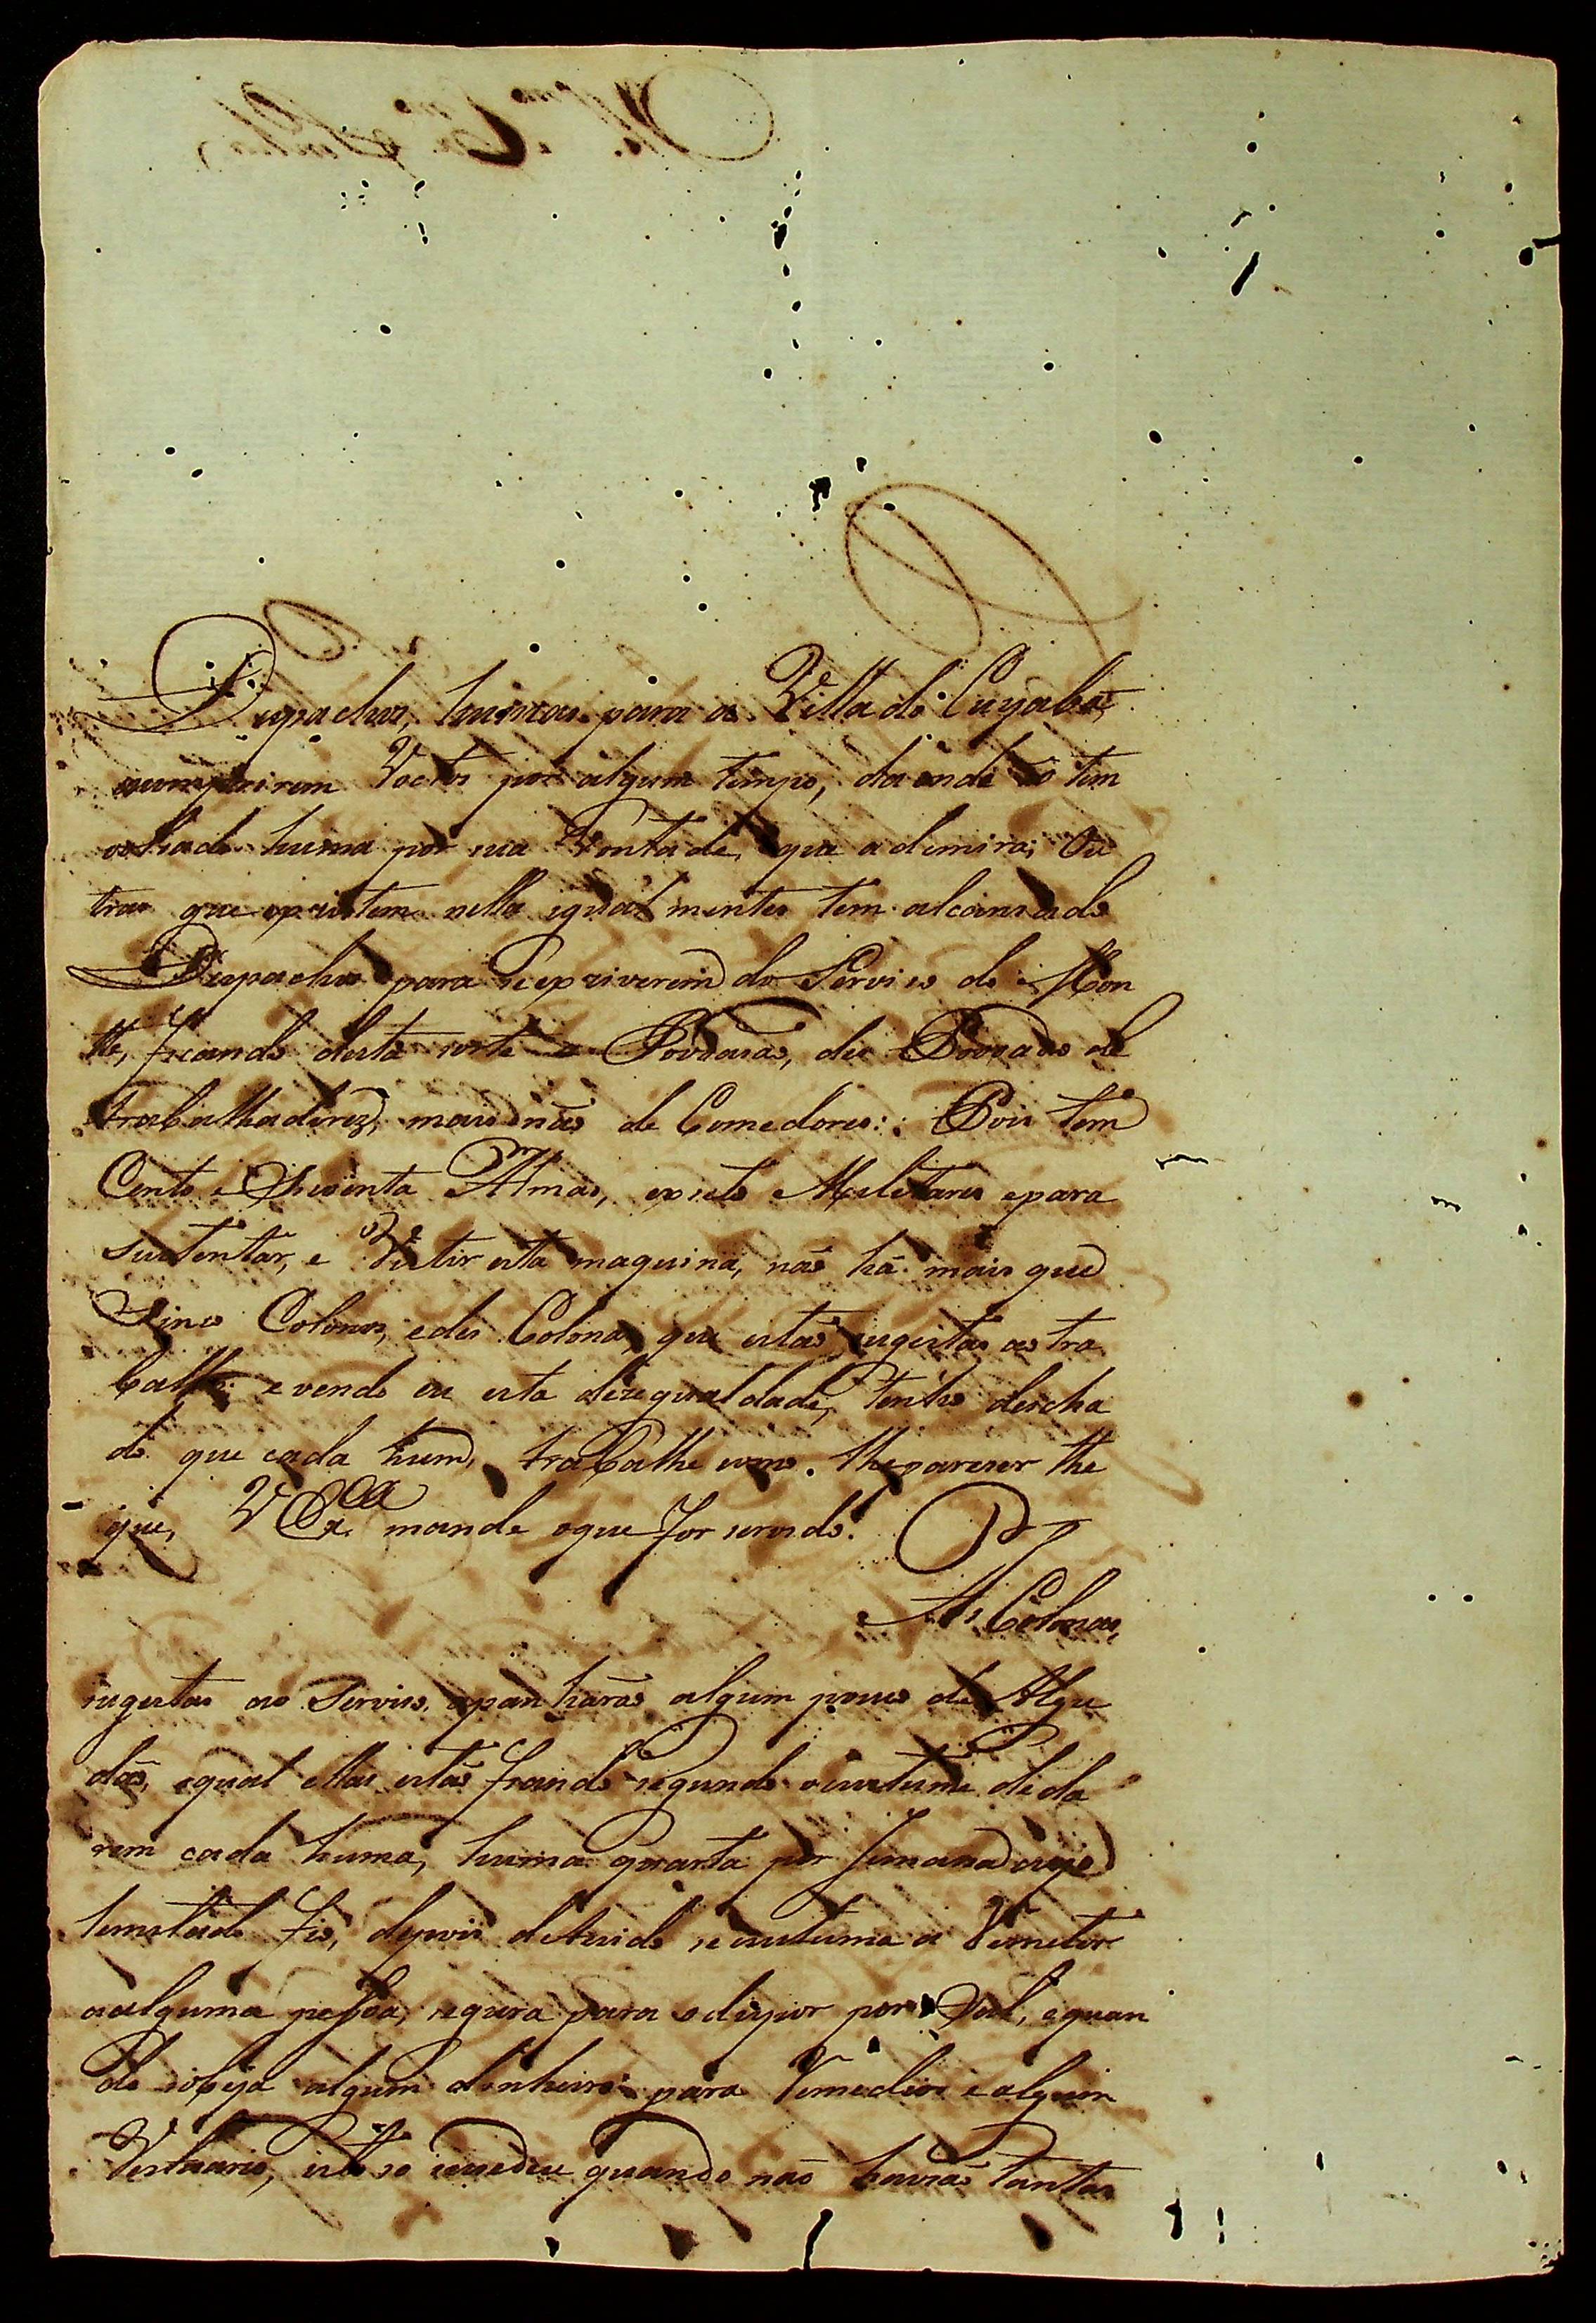 Despachos, humas para a Villa do Cuyaba,
cumprirem Voctos por algum tempo, da onde so tem
voltado huma por sua Vontade, que a demira; Ou
tras que existem nella igual mentes tem alcansado
Despachos para se eximirem do Serviso do Mon
te, ficando desta sorte a Povoasaõ, des Povoado de
trabalhadorez, mais naõ de Comedores: Pois tem
Cento e Secenta Almas, exseto Melitares e para
sustentar, e Vistir esta maquina, naõ há mais que
Sinco Colonos, e des Colonas, que estaõ sugeitas ao tra
balho: e vendo eu esta dezegualdade, tenho deicha
do que cada hum, trabalhe como lhe pareser the
que, V Exa. mande o que for servido.
As Colonas,
sugeitas ao Serviso, apanharaõ algum pouco de Algu
daõ, o qual ellas estaõ fiando segundo o custume de da
rem cada huma, huma quarta por Semana cujo
lemetado fio, depois de tesido se custuma a Remeter
a alguma pessoa, segura para o dispor por Sal, e quan
do sobeja algum dinheiro para Remedios e algum
Vestuario, isto so susedeu quando naõ haviaõ tantas